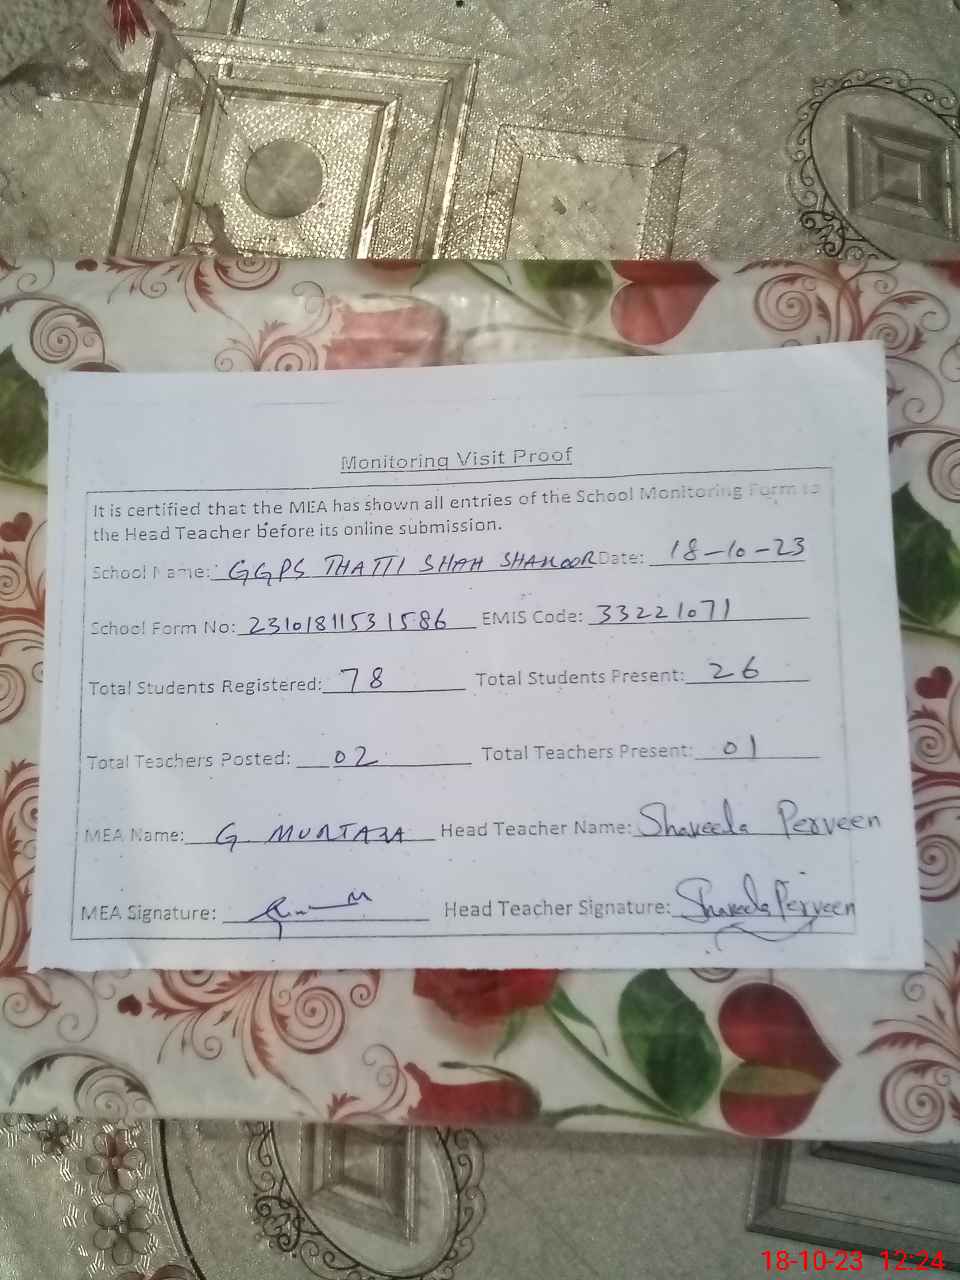 Monitoring Visit Proof
It is certified that the MEA has shown all entries of the School Monitoring Form to
the Head Teacher before its online submission.
School Name: GGPS THATTI SHAH SHAKOOR Date: 18-10-23
School Form No: 23101811531586 EMIS Code: 33221071
Total Students Registered: 78 Total Students Present: 26
Total Teachers Posted: 02 Total Teachers Present: 01
MEA Name: G. MURTAZA Head Teacher Name: Shakeela Perveen
MEA Signature: Head Teacher Signature: Shakeela Perveen
18-10-23 12:24